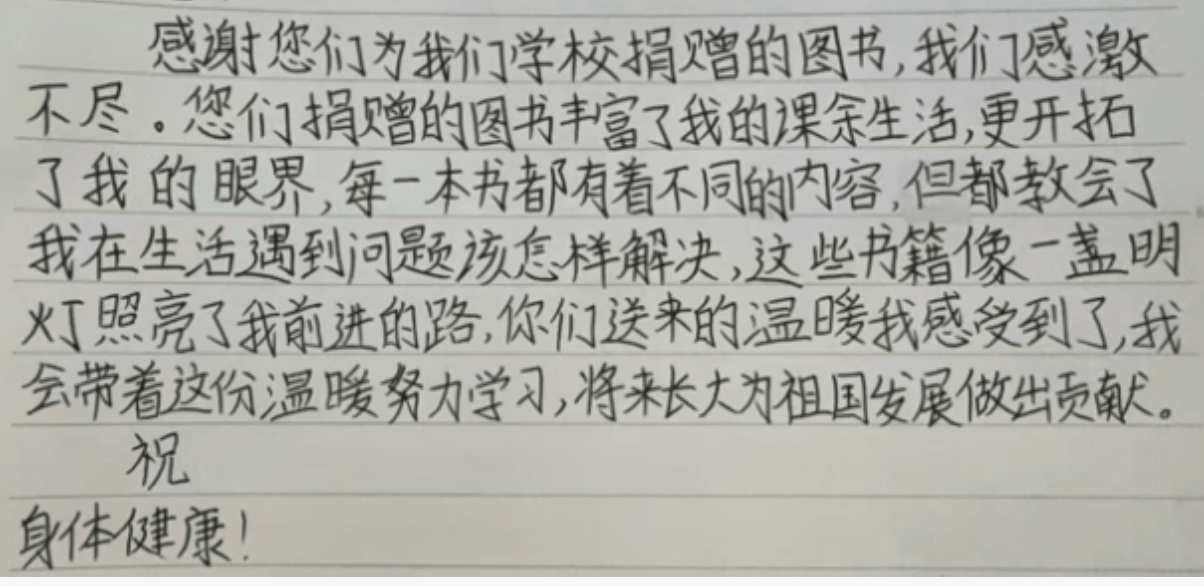 感谢您们为我们学校捐赠的图书,我们感激
不尽。您们捐赠的图书丰富了我的课余生活,更开拓
了我的眼界,每一本书都有着不同的内容,但都教会了
我在生活遇到问题该怎样解决,这些书籍像一盏明
灯照亮了我前进的路,你们送来的温暖我感受到了,我
会带着这份温暖努力学习,将来长大为祖国发展做出贡献。
祝
身体健康!